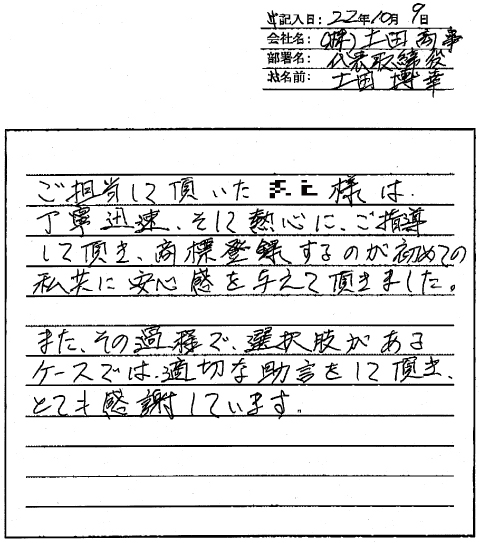 ご記入日：22年10月9日
会社名：(株)土田商事
部署名：代表取締役
お名前：土田 博幸
ご担当して頂いた 様は、
丁寧迅速、そして熱心に、ご指導
して頂き、商標登録するのが初めての
私共に安心感を与えて頂きました。
また、その過程で、選択肢がある
ケースでは、適切な助言をして頂き、
とても感謝しています。